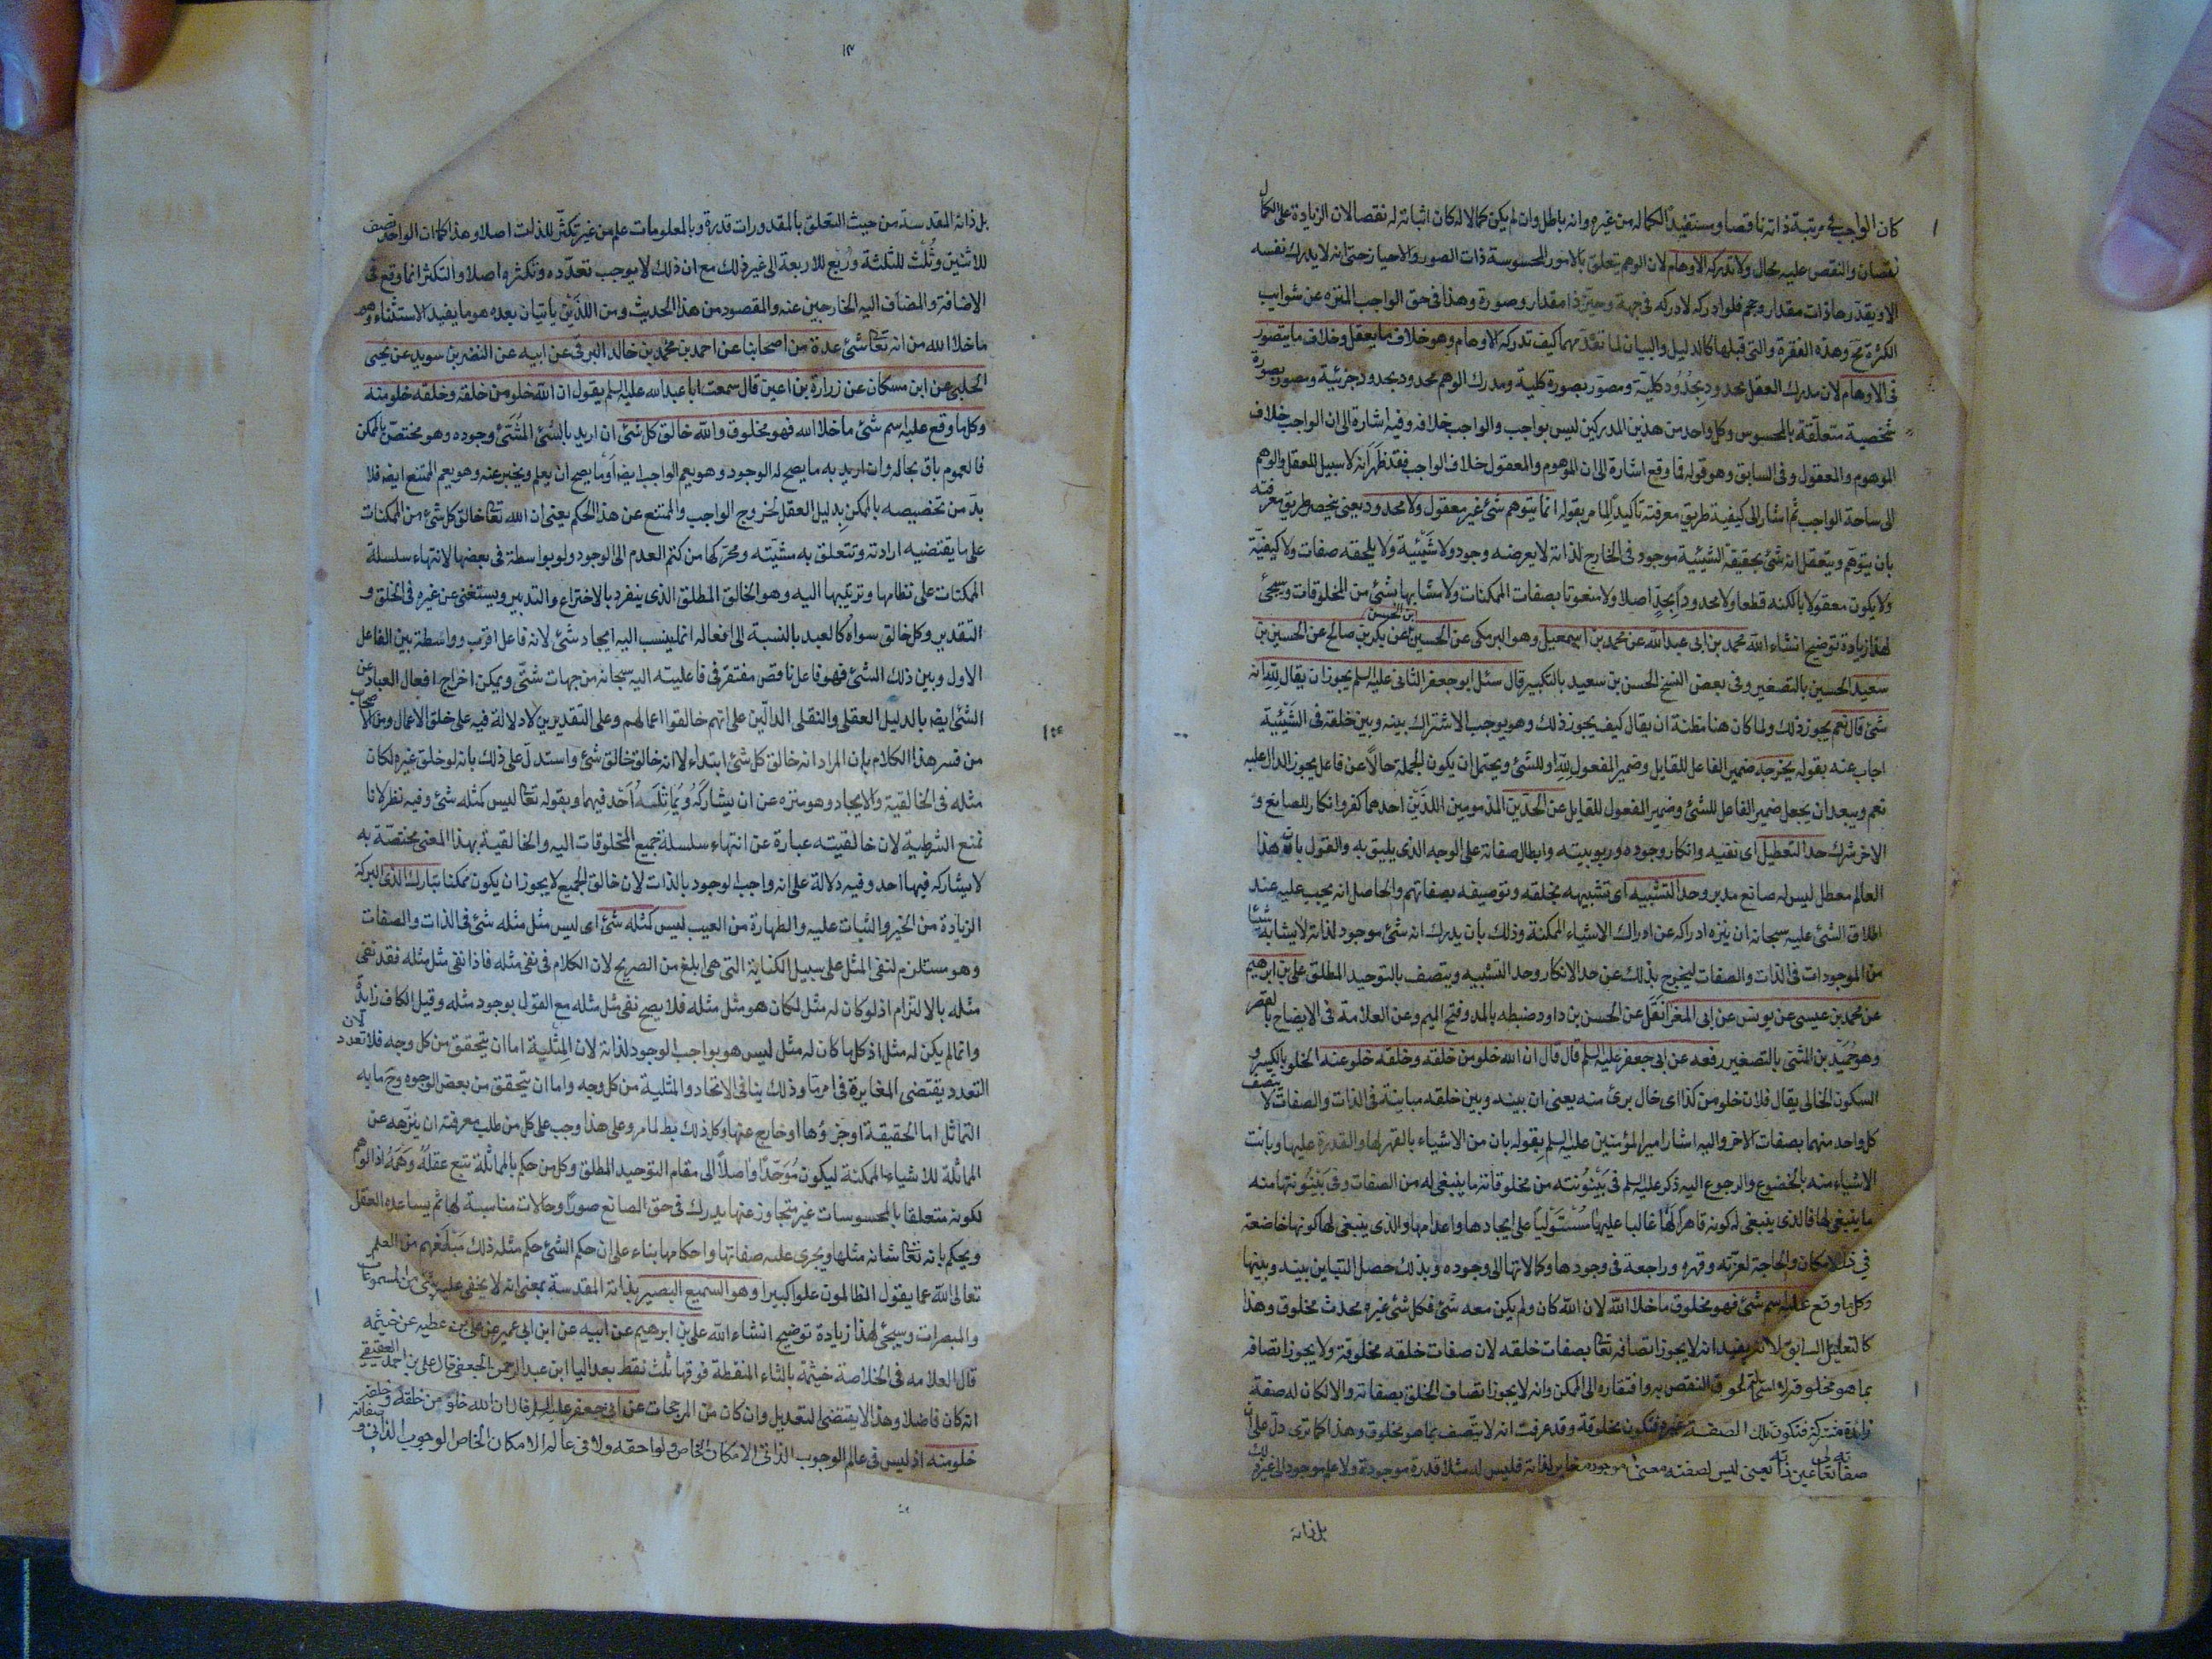 كان الواجب في مرتبة ذاته ناقصا ومستفيدا لكماله من غيره وانه باطل وان لم يكن كمالا له كان اثباته له نقصا لان الزيادة على الكمال
نقصان والنقص عليه محال ولا تدركه الاوهام لان الوهم يتعلق بالامور المحسوسة ذات الصور والاحياز حتى انه لا يدرك نفسه
الا ويقدرها ذات مقدار وحجم فلو ادركه لادركه في جهة وحيز ذا مقدار وصورة وهذا في حق الواجب المنزه عن شوايب
الكثرة مح وهذه الفقرة والتي قبلها كالدليل والبيان لما تقدمهما كيف تدركه الاوهام وهو خلاف ما يعقل وخلاف ما يتصور
في الاوهام لان مدرك العقل محدود بحدود كلية ومصور بصورة كلية ومدرك الوهم محدود بحدود جزئية ومصور بصورة
شخصية متعلقة بالمحسوس وكل واحد من هذين المدركين ليس بواجب والواجب خلافه وفيه اشارة الى ان الواجب خلاف
الموهوم والمعقول وفي السابق وهو قوله فما وقع اشارة الى ان الموهوم والمعقول خلاف الواجب فقد ظهر انه لا سبيل للعقل والوهم
الى ساحة الواجب ثم اشار الى كيفية طريق معرفته تاكيدا لما مر بقوله انما يتوهم شئ غير معقول ولا محدود يعني ينحصر طريق معرفته
بان يتوهم ويتعقل انه شئ بحقيقة الشيئية موجود في الخارج لذاته لا يعرضه وجود ولا شيئية ولا يلحقه صفات ولا كيفية
ولا يكون معقولا بالكنه قطعا ولا محدودا بحد اصلا ولا منعوتا بصفات الممكنات ولا مشابها بشئ من المخلوقات وسيجئ
لهذا زيادة توضيح انشاء الله محمد بن ابي عبد الله عن محمد بن اسمعيل وهو البرمكي عن الحسين بن الحسن عن بكر بن صالح عن الحسين بن
سعيد الحسين بالتصغير وفي بعض النسخ الحسن بن سعيد بالتكبير قال سئل ابو جعفر الثاني عليه السلم يجوز ان يقال لله انه
شئ قال نعم يجوز ذلك ولما كان هنا مظنة ان يقال كيف يجوز ذلك وهو يوجب الاشتراك بينه وبين خلقه في الشيئية
اجاب عنه بقوله يخرجه ضمير الفاعل للقايل وضمير المفعول لله او للشئ ويحتمل ان يكون الجملة حالا عن فاعل يجوز الدال عليه
نعم ويبعد ان يجعل ضمير الفاعل للشئ وضمير المفعول للقايل عن الحدين المذمومين اللذين احدهما كفر وانكار للصانع و
الاخر شرك حد التعطيل اي نفيه وانكار وجوده وربوبيته وابطال صفاته على الوجه الذي يليق به والقول بان هذا
العالم معطل ليس له صانع مدبر وحد التشبيه اي تشبيهه بخلقه وتوصيفه بصفاتهم والحاصل انه يجب عليه عند
اطلاق الشئ عليه سبحانه ان ينزه ادراكه عن ادراك الاشياء الممكنة وذلك بان يدرك انه شئ موجود لذاته لا يشابه شيئا
من الموجودات في الذات والصفات ليخرج بذلك عن حد الانكار وحد التشبيه ويتصف بالتوحيد المطلق علي بن ابرهيم
عن محمد بن عيسى عن يونس عن ابي المغرا نقل عن الحسن بن داود ضبطه بالمد وفتح الميم وعن العلامة في الايضاح بالقصر
وهو حميد بن المثنى بالتصغير رفعه عن ابي جعفر عليه السلم قال قال ان الله خلو من خلقه وخلقه خلو عنه الخلو بالكسر و
السكون الخالي يقال فلان خلو من كذا اي خال برئ منه يعني ان بينه وبين خلقه مباينة في الذات والصفات لا يتصف
كل واحد منهما بصفات الاخر واليه اشار امير المؤمنين عليه السلم بقوله بان من الاشياء بالقهر لها والقدرة عليها وبانت
الاشياء منه بالخضوع والرجوع اليه ذكر عليه السلم في بينونته من مخلوقاته ما ينبغي له من الصفات وفي بينونتها منه
ما ينبغي لها فالذي ينبغي له كونه قاهرا لها غالبا عليها مستوليا على ايجادها واعدامها والذي ينبغي لها كونها خاضعة
في ذل الامكان والحاجة لعزته وقهره وراجعة في وجودها وكمالاتها الى وجوده وبذلك حصل التباين بينه وبينها
وكل ما وقع عليه اسم شئ فهو مخلوق ما خلا الله لان الله كان ولم يكن معه شئ فكل شئ غيره محدث مخلوق وهذا
كالتعليل السابق لانه يفيد انه لا يجوز اتصافه تعا بصفات خلقه لان صفات خلقه مخلوقة ولا يجوز اتصافه
بما هو مخلوق لحوق النقص به وافتقاره الى الممكن وانه لا يجوز اتصاف الخلق بصفاته والا لكان له صفة
زائدة فتكون تلك الصفة غيره فتكون مخلوقة وقد عرفت انه لا يتصف بما هو مخلوق وهذا كما ترى دل على ان
صفاته تعالى عين ذاته يعني ليس لصفته معنى موجود مغاير لذاته فليس له مثلا قدرة موجودة ولا علم موجود الى غير ذلك
بل ذاته
١٣
بل ذاته المقدسة من حيث التعلق بالمقدورات قدرة وبالمعلومات علم من غير تكثر للذات اصلا وهذا كما ان الواحد نصف
للاثنين وثلث للثلثة وربع للاربعة الى غير ذلك مع ان ذلك لا يوجب تعدده وتكثره اصلا والتكثر انما وقع في
الاضافة والمضاف اليه الخارجين عنه والمقصود من هذا الحديث ومن اللذين ياتيان بعده هو ما يفيد الاستثناء وهو
ما خلا الله من انه تعا شئ عدة من اصحابنا عن احمد بن محمد بن خالد البرقي عن ابيه عن النضر بن سويد عن يحيى
الحلبي عن ابن مسكان عن زرارة بن اعين قال سمعت ابا عبد الله عليه السلم يقول ان الله خلو من خلقه وخلقه خلو منه
وكل ما وقع عليه اسم شئ ما خلا الله فهو مخلوق والله خالق كل شئ ان اريد بالشئ المشئ وجوده وهو مختص بالممكن
فالعموم باق بحاله وان اريد به ما يصح له الوجود وهو يعم الواجب ايضا او ما يصح ان يعلم ويخبر عنه وهو يعم الممتنع ايضا فلا
بد من تخصيصه بالممكن بدليل العقل لخروج الواجب والممتنع عن هذا الحكم يعني ان الله تعا خالق كل شئ من الممكنات
على ما يقتضيه ارادته وتتعلق به مشيته ومخرجها من كتم العدم الى الوجود ولو بواسطة في بعضها لانتهاء سلسلة
الممكنات على نظامها وترتيبها اليه وهو الخالق المطلق الذي ينفرد بالاختراع والتدبير ويستغني عن غيره في الخلق و
التقدير وكل خالق سواه كالعبد بالنسبة الى افعاله انما ينسب اليه ايجاد شئ لانه فاعل اقرب وواسطة بين الفاعل
الاول وبين ذلك الشئ فهو فاعل ناقص مفتقر في فاعليته اليه سبحانه من جهات شتى ويمكن اخراج افعال العباد عن
الشئ ايضا بالدليل العقلي والنقلي الدالين على انهم خالقوا اعمالهم وعلى التقديرين لا دلالة فيه على خلق الاعمال ومن الاصحاب
من فسر هذا الكلام بان المراد انه خالق كل شئ ابتداء لا انه خالق خالق شئ واستدل على ذلك بانه لو خلق غيره لكان
مثله في الخالقية والايجاد وهو منزه عن ان يشاركه ويماثله احد فيهما وبقوله تعا ليس كمثله شئ وفيه نظر لانا
نمنع الشرطية لان خالقيته عبارة عن انتهاء سلسلة جميع المخلوقات اليه والخالقية بهذا المعنى مختصة به
لا يشاركه فيها احد وفيه دلالة على انه واجب الوجود بالذات لان خالق الجميع لا يجوز ان يكون ممكنا تبارك الذي البركة
الزيادة من الخير والثبات عليه والطهارة من العيب ليس كمثله شئ اي ليس مثل مثله شئ في الذات والصفات
وهو مستلزم لنفي المثل على سبيل الكناية التي هي ابلغ من الصريح لان الكلام في نفي مثله فاذا نفى مثل مثله فقد نفى
مثله بالالتزام اذ لو كان له مثل لكان هو مثل مثله فلا يصح نفي مثل مثله مع القول بوجود مثله وقيل الكاف زايدة
وانما لم يكن له مثل اذ كل ما كان له مثل ليس هو بواجب الوجود لذاته لان المثلية اما ان يتحقق من كل وجه فلا تعدد لان
التعدد يقتضي المغايرة في امر ما وذلك ينافي الاتحاد والمثلية من كل وجه واما ان يتحقق من بعض الوجوه وح ما به
التماثل اما الحقيقة او جزؤها او خارج عنها وكل ذلك بط لما مر وعلى هذا وجب على كل من طلب معرفته ان ينزهه عن
المماثلة للاشياء الممكنة ليكون موحدا واصلا الى مقام التوحيد المطلق وكل من حكم بالمماثلة تتبع عقله وهمه اذ الوهم
لكونه متعلقا بالمحسوسات غير متجاوز عنها يدرك في حق الصانع صورا وحالات مناسبة لها ثم يساعده العقل
ويحكم بانه تعا شانه مثلها ويجري عليه صفاتها واحكامها بناء على ان حكم الشئ حكم مثله ذلك مبلغهم من العلم
تعالى الله عما يقول الظالمون علوا كبيرا وهو السميع البصير بذاته المقدسة بمعنى انه لا يخفى عليه شئ من المسموعات
والمبصرات وسيجئ لهذا زيادة توضيح انشاء الله علي بن ابرهيم عن ابيه عن ابن ابي عمير عن علي بن عطيه عن خيثمه
قال العلامه في الخلاصة خيثمة بالثاء المنقطة فوقها ثلث نقط بعد اليا ابن عبد الرحمن الجعفي قال علي بن احمد العقيقي
انه كان فاضلا وهذا لا يقتضي التعديل وان كان من المرجحات عن ابي جعفر عليه السلم قال ان الله خلو من خلقه وخلقه
خلو منه اذ ليس في عالم الوجوب الذاتي الامكان الخاص ولواحقه ولا في عالم الامكان الخاص الوجوب الذاتي و